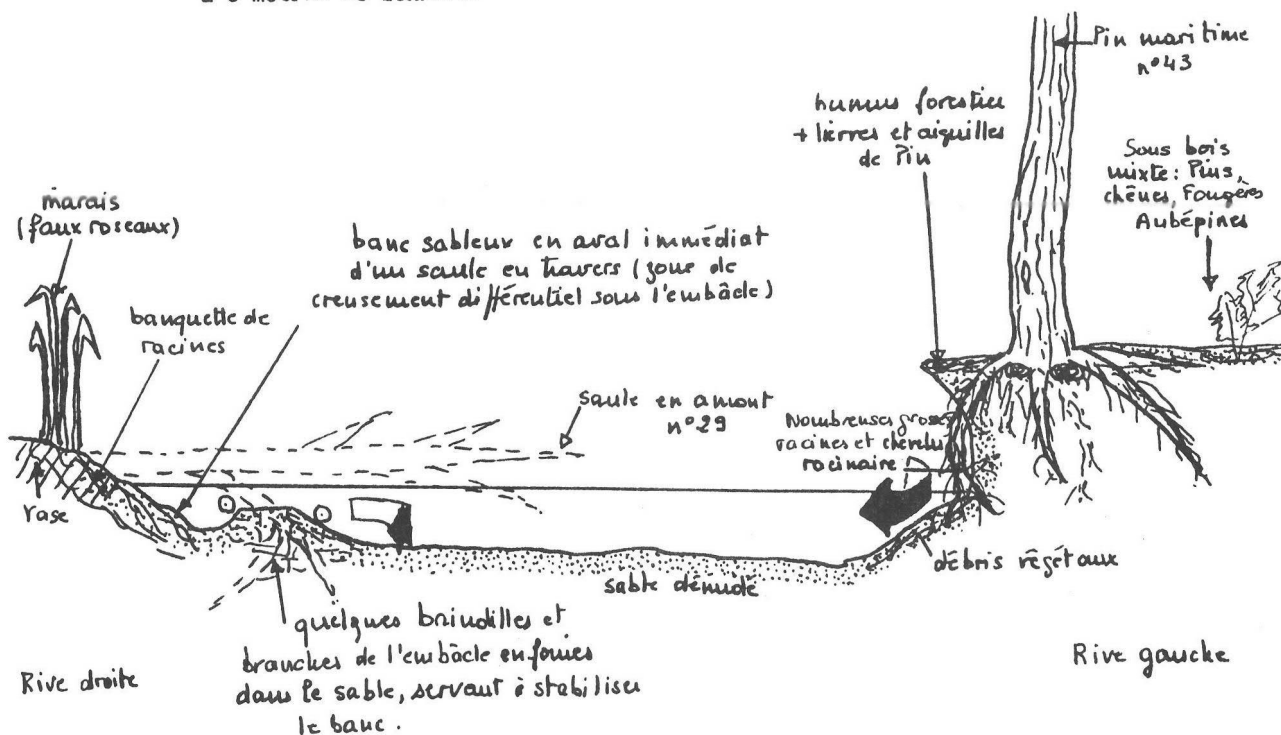 Pin maritime
n°43
humus forestier
+ lierres et aiguilles
de Pin
Sous bois
mixte: Pins,
chênes, Fougères
Aubépines
marais
(faux roseaux)
banc sableux en aval immédiat
d'un saule en travers (zone de
creusement différentiel sous l'embâcle)
banquette de
racines
saule en amont
n°29
Nombreuses grosses
racines et chevelu
racinaire
vase
débris végétaux
sable dénudé
quelques brindilles et
branches de l'embâcle enfouies
dans le sable, servant à stabiliser
le banc.
Rive droite
Rive gauche